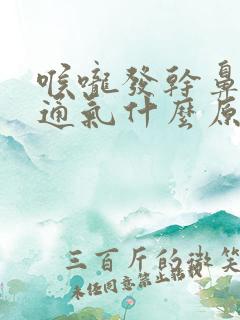 喉嚨發幹鼻
通氣什麼原
三百斤的微笑
未經同意禁止轉載